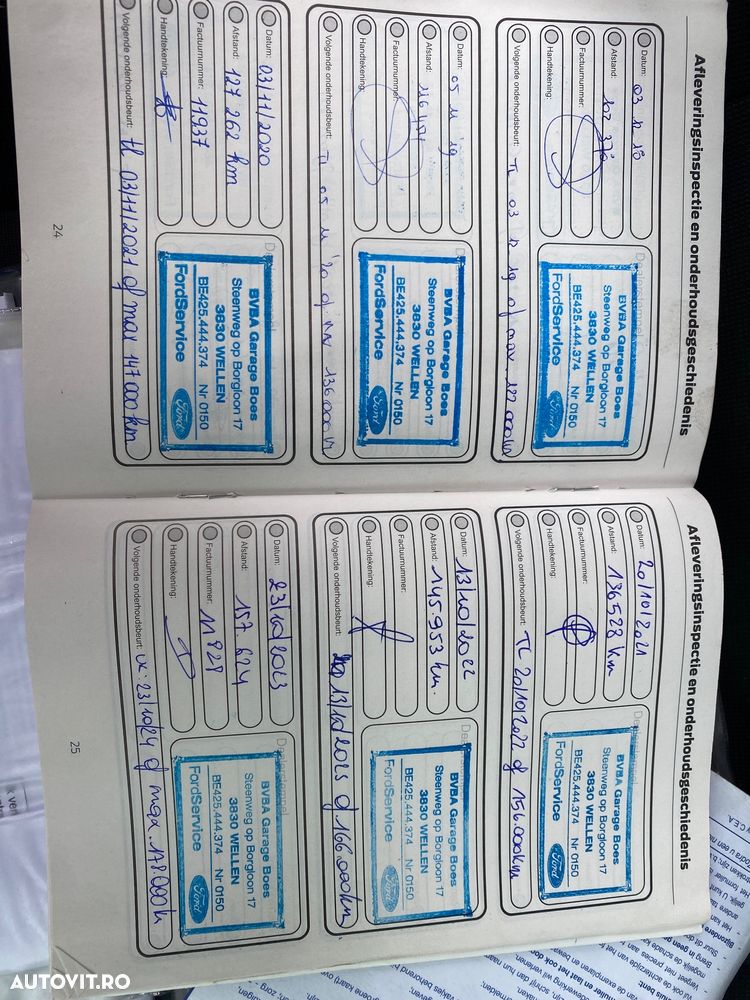 Afleveringsinspectie en onderhoudsgeschiedenis
Datum: 03 12 18
Afstand: 102 370
Factuurnummer:
Handtekening:
Volgende onderhoudsbeurt: TL 03 12 19 of max. 122.000 km
BVBA Garage Boes
Steenweg op Borgloon 17
3830 WELLEN
BE425.444.374 Nr 0150
FordService Ford
Datum: 05 11 19
Afstand: 116 471
Factuurnummer:
Handtekening:
Volgende onderhoudsbeurt: TL 05 11 '20 of max 136.000 km
BVBA Garage Boes
Steenweg op Borgloon 17
3830 WELLEN
BE425.444.374 Nr 0150
FordService Ford
Datum: 03/11/2020
Afstand: 127 262 km
Factuurnummer: 11937
Handtekening:
Volgende onderhoudsbeurt: tl 03/11/2021 of max 147000 km
BVBA Garage Boes
Steenweg op Borgloon 17
3830 WELLEN
BE425.444.374 Nr 0150
FordService Ford
24
Afleveringsinspectie en onderhoudsgeschiedenis
Datum: 20/10/2021
Afstand: 136528 km
Factuurnummer:
Handtekening:
Volgende onderhoudsbeurt: TL 20/10/2022 of 156.000km
BVBA Garage Boes
Steenweg op Borgloon 17
3830 WELLEN
BE425.444.374 Nr 0150
FordService Ford
Datum: 13/10/2022
Afstand: 145.953 km.
Factuurnummer:
Handtekening:
Volgende onderhoudsbeurt: 13/10/2023 of 166.000km
BVBA Garage Boes
Steenweg op Borgloon 17
3830 WELLEN
BE425.444.374 Nr 0150
FordService Ford
Datum: 23/10/2023
Afstand: 157 624
Factuurnummer: 11828
Handtekening:
Volgende onderhoudsbeurt: 23/10/24 of max. 178000 k
Dealerstempel
BVBA Garage Boes
Steenweg op Borgloon 17
3830 WELLEN
BE425.444.374 Nr 0150
FordService Ford
25
AUTOVIT.RO